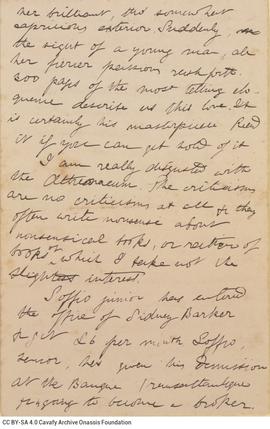 her brilliant, tho' somewhat
capricious exterior. Suddenly,
the sight of a young man, all
her fiercer passions rush forth.
300 pages of the most telling elo-
quence describe us this love. It
is certainly his masterpiece. Read
it if you can get hold of it
I am really disgusted with
the Athenaeum. The criticisms
are no criticisms at all & they
often write nonsense about
nonsensical books, or rather of
books in which I take not the
slightest interest.
Soffio junior has entered
the office of Sidney Barker
& get £6 per month. Soffio,
senior, has given his demission
at the Banque Transatlantique
& going to become a broker.
CC BY-SA 4.0 Cavafy Archive Onassis Foundation